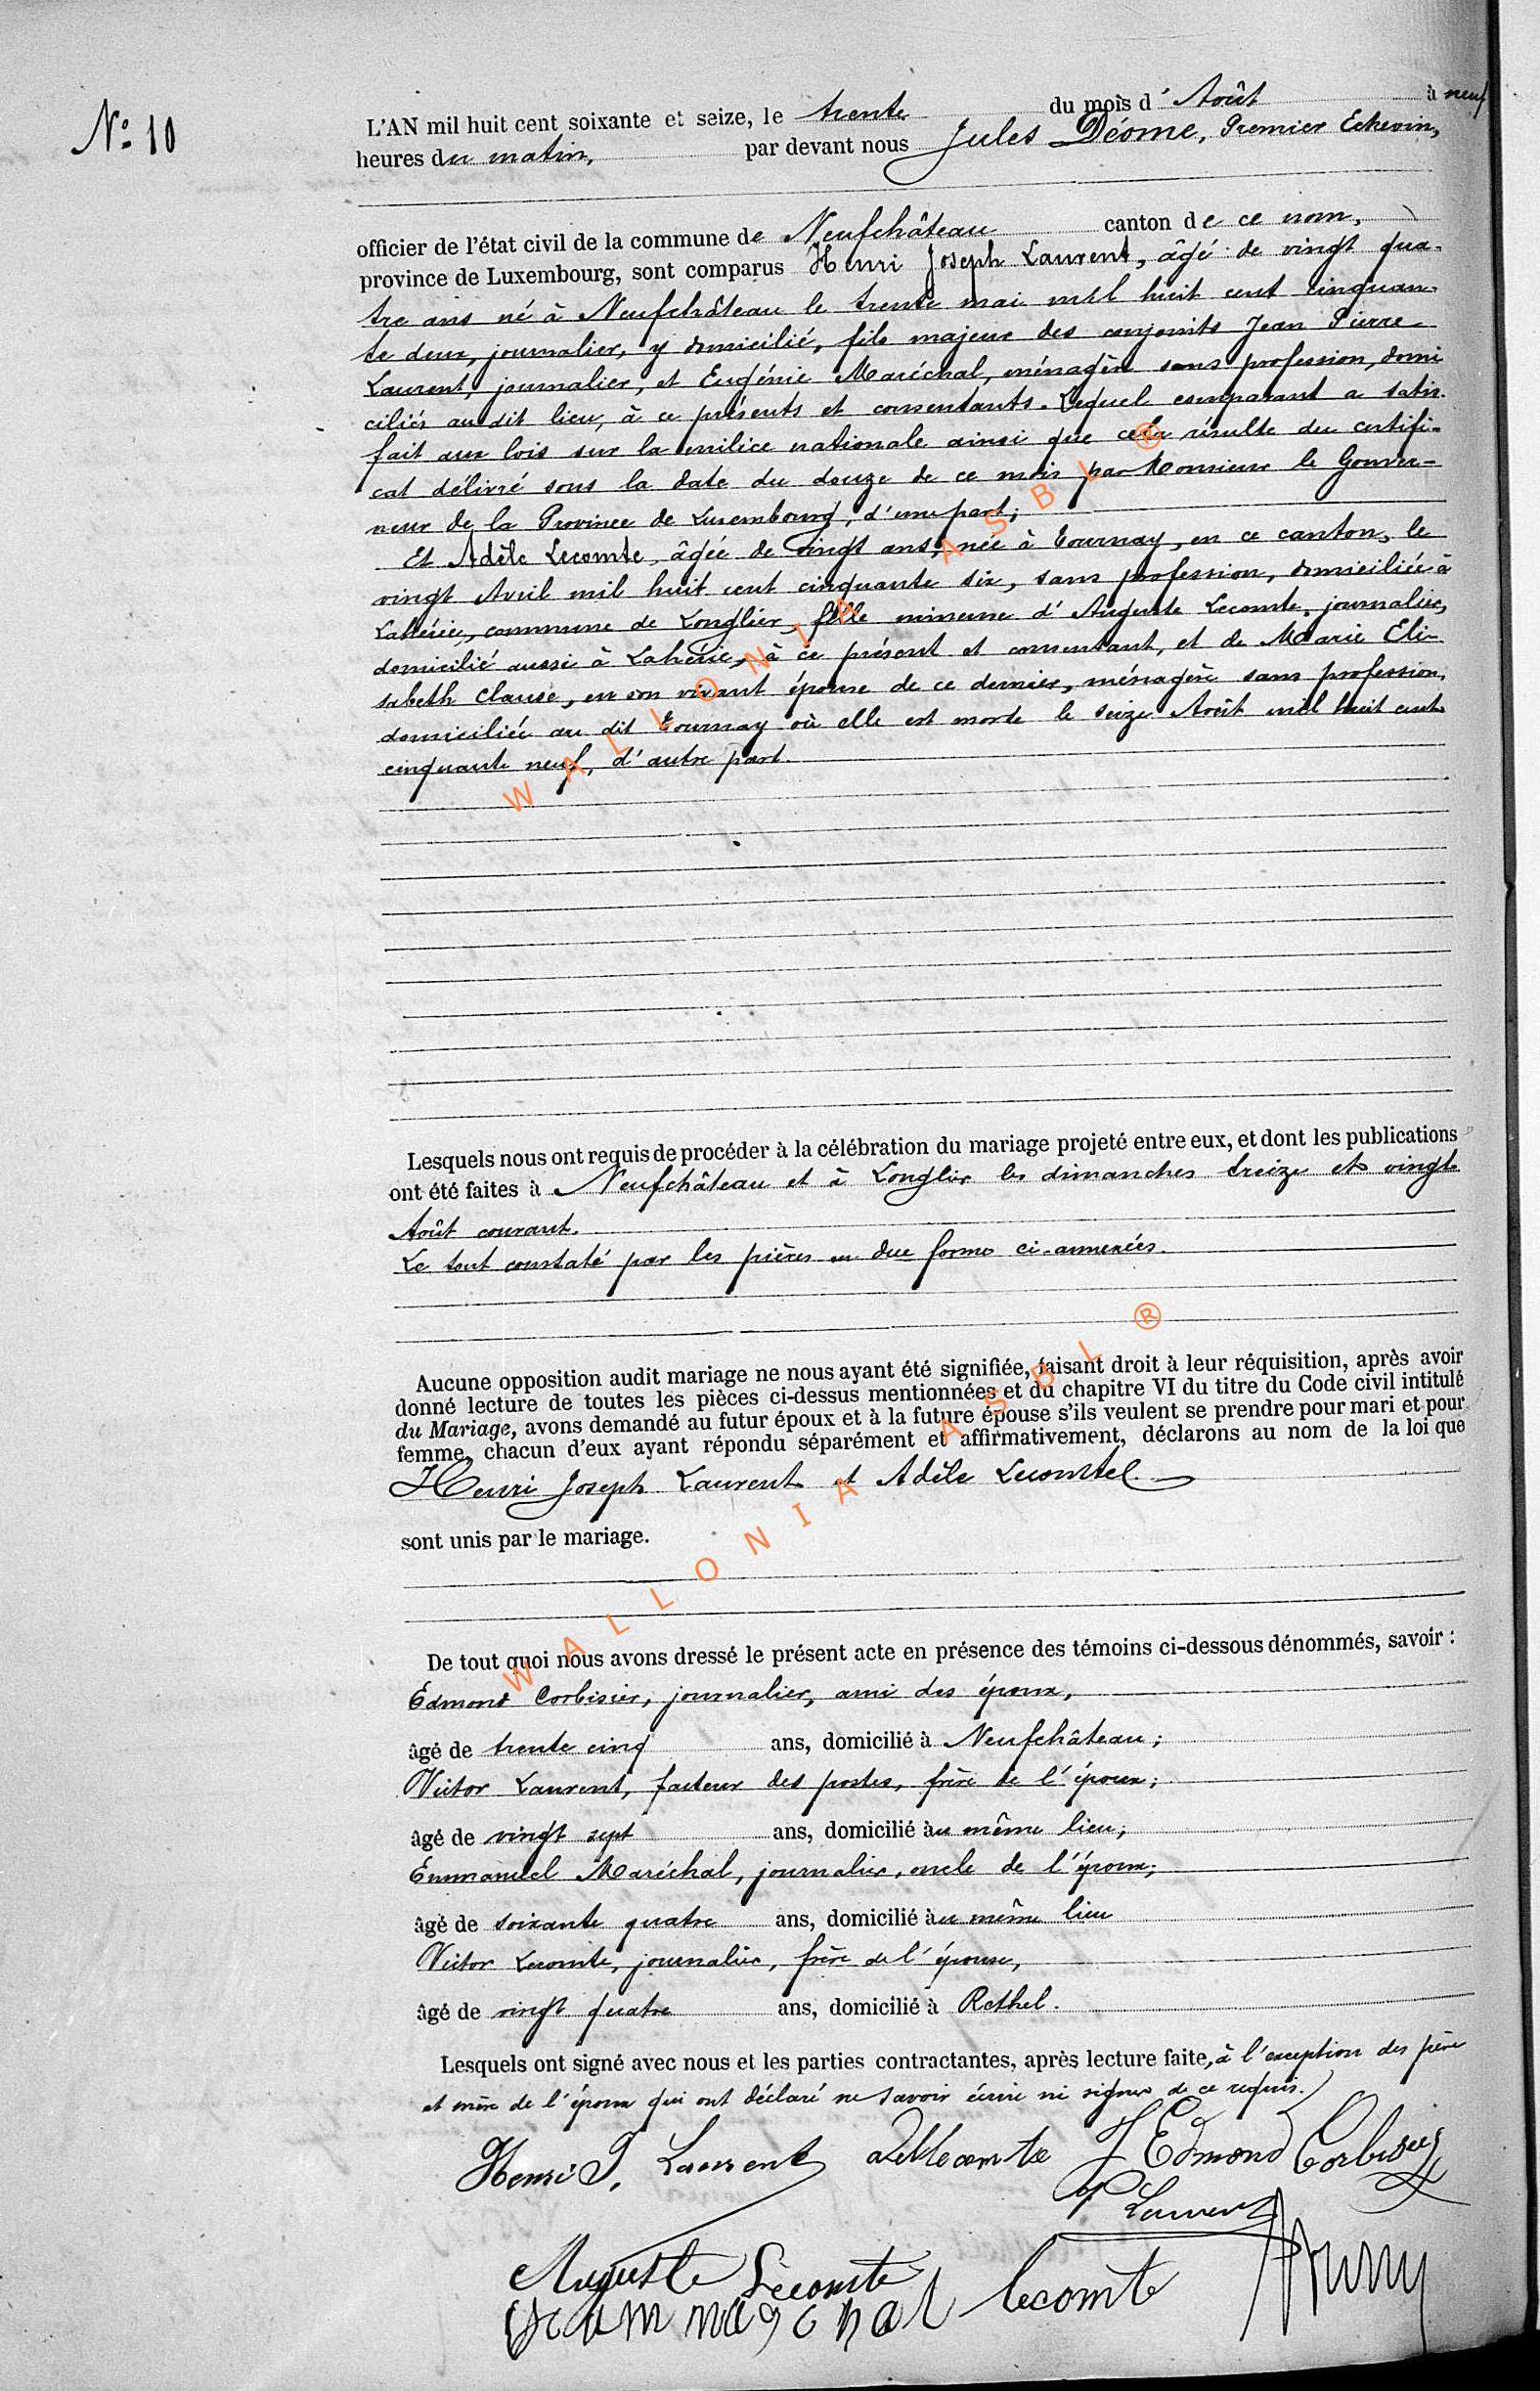 N° 10
L'AN mil huit cent soixante et seize, le trente du mois d' Août à neuf
heures du matin, par devant nous Jules Déome, Premier Echevin,
officier de l'état civil de la commune de Neufchâteau canton de ce nom,
province de Luxembourg, sont comparus Henri Joseph Laurent, âgé de vingt qua-
tre ans né à Neufchâteau le trente mai mil huit cent cinquan-
te deux, journalier, y domicilié, fils majeur des conjoints Jean Pierre
Laurent, journalier, et Eugénie Maréchal, ménagère sans profession, domi
ciliés au dit lieu, à ce présents et consentants. Lequel comparant a satis-
fait aux lois sur la milice nationale ainsi que cela résulte du certifi-
cat délivré sous la date du douze de ce mois par Monsieur le Gouver-
neur de la Province de Luxembourg, d'une part;
Et Adèle Lecomte, âgée de vingt ans, née à Tournay, en ce canton, le
vingt Avril mil huit cent cinquante six, sans profession, domiciliée à
Lahérie, commune de Longlier, fille mineure d'Auguste Lecomte, journalier,
domicilié aussi à Lahérie, à ce présent et consentant, et de Marie Eli-
sabeth Clause, en son vivant épouse de ce dernier, ménagère sans profession,
domiciliée au dit Tournay où elle est morte le seize Août mil huit cent
cinquante neuf, d'autre part.
Lesquels nous ont requis de procéder à la célébration du mariage projeté entre eux, et dont les publications
ont été faites à Neufchâteau et à Longlier les dimanches treize et vingt
Août courant.
Le tout constaté par les pièces en due forme ci-annexées.
Aucune opposition audit mariage ne nous ayant été signifiée, faisant droit à leur réquisition, après avoir
donné lecture de toutes les pièces ci-dessus mentionnées et du chapitre VI du titre du Code civil intitulé
du Mariage, avons demandé au futur époux et à la future épouse s'ils veulent se prendre pour mari et pour
femme, chacun d'eux ayant répondu séparément et affirmativement, déclarons au nom de la loi que
Henri Joseph Laurent et Adèle Lecomte
sont unis par le mariage.
De tout quoi nous avons dressé le présent acte en présence des témoins ci-dessous dénommés, savoir :
Edmond Corbisier, journalier, ami des époux,
âgé de trente cinq ans, domicilié à Neufchâteau;
Victor Laurent, facteur des postes, frère de l'époux;
âgé de vingt sept ans, domicilié au même lieu;
Emmanuel Maréchal, journalier, oncle de l'époux;
âgé de soixante quatre ans, domicilié au même lieu
Victor Lecomte, journalier, frère de l'épouse,
âgé de vingt quatre ans, domicilié à Rethel.
Lesquels ont signé avec nous et les parties contractantes, après lecture faite, à l'exception des père
et mère de l'époux qui ont déclaré ne savoir écrire ni signer de ce requis.
Henri J. Laurent Edmond Corbisier
Laurent
Auguste Lecomte Lecomte
WALLONIA ASBL ®
WALLONIA ASBL ®